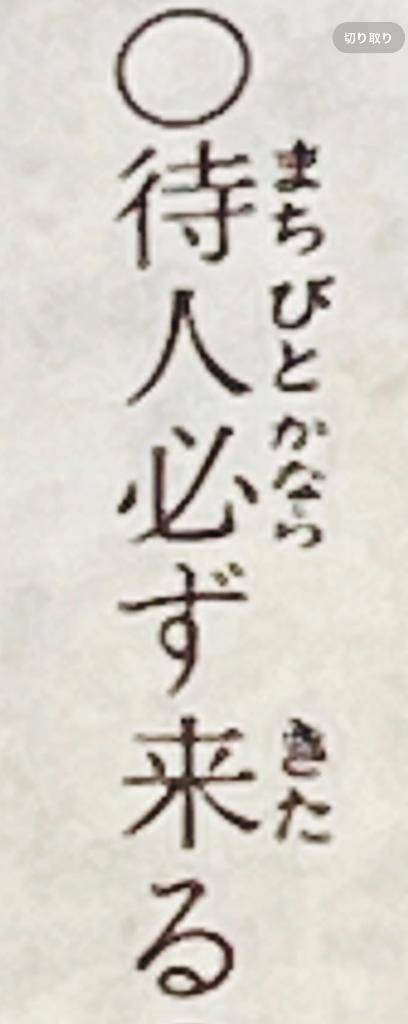 切り取り
○待人必ず来る
まちびとかなら
きた